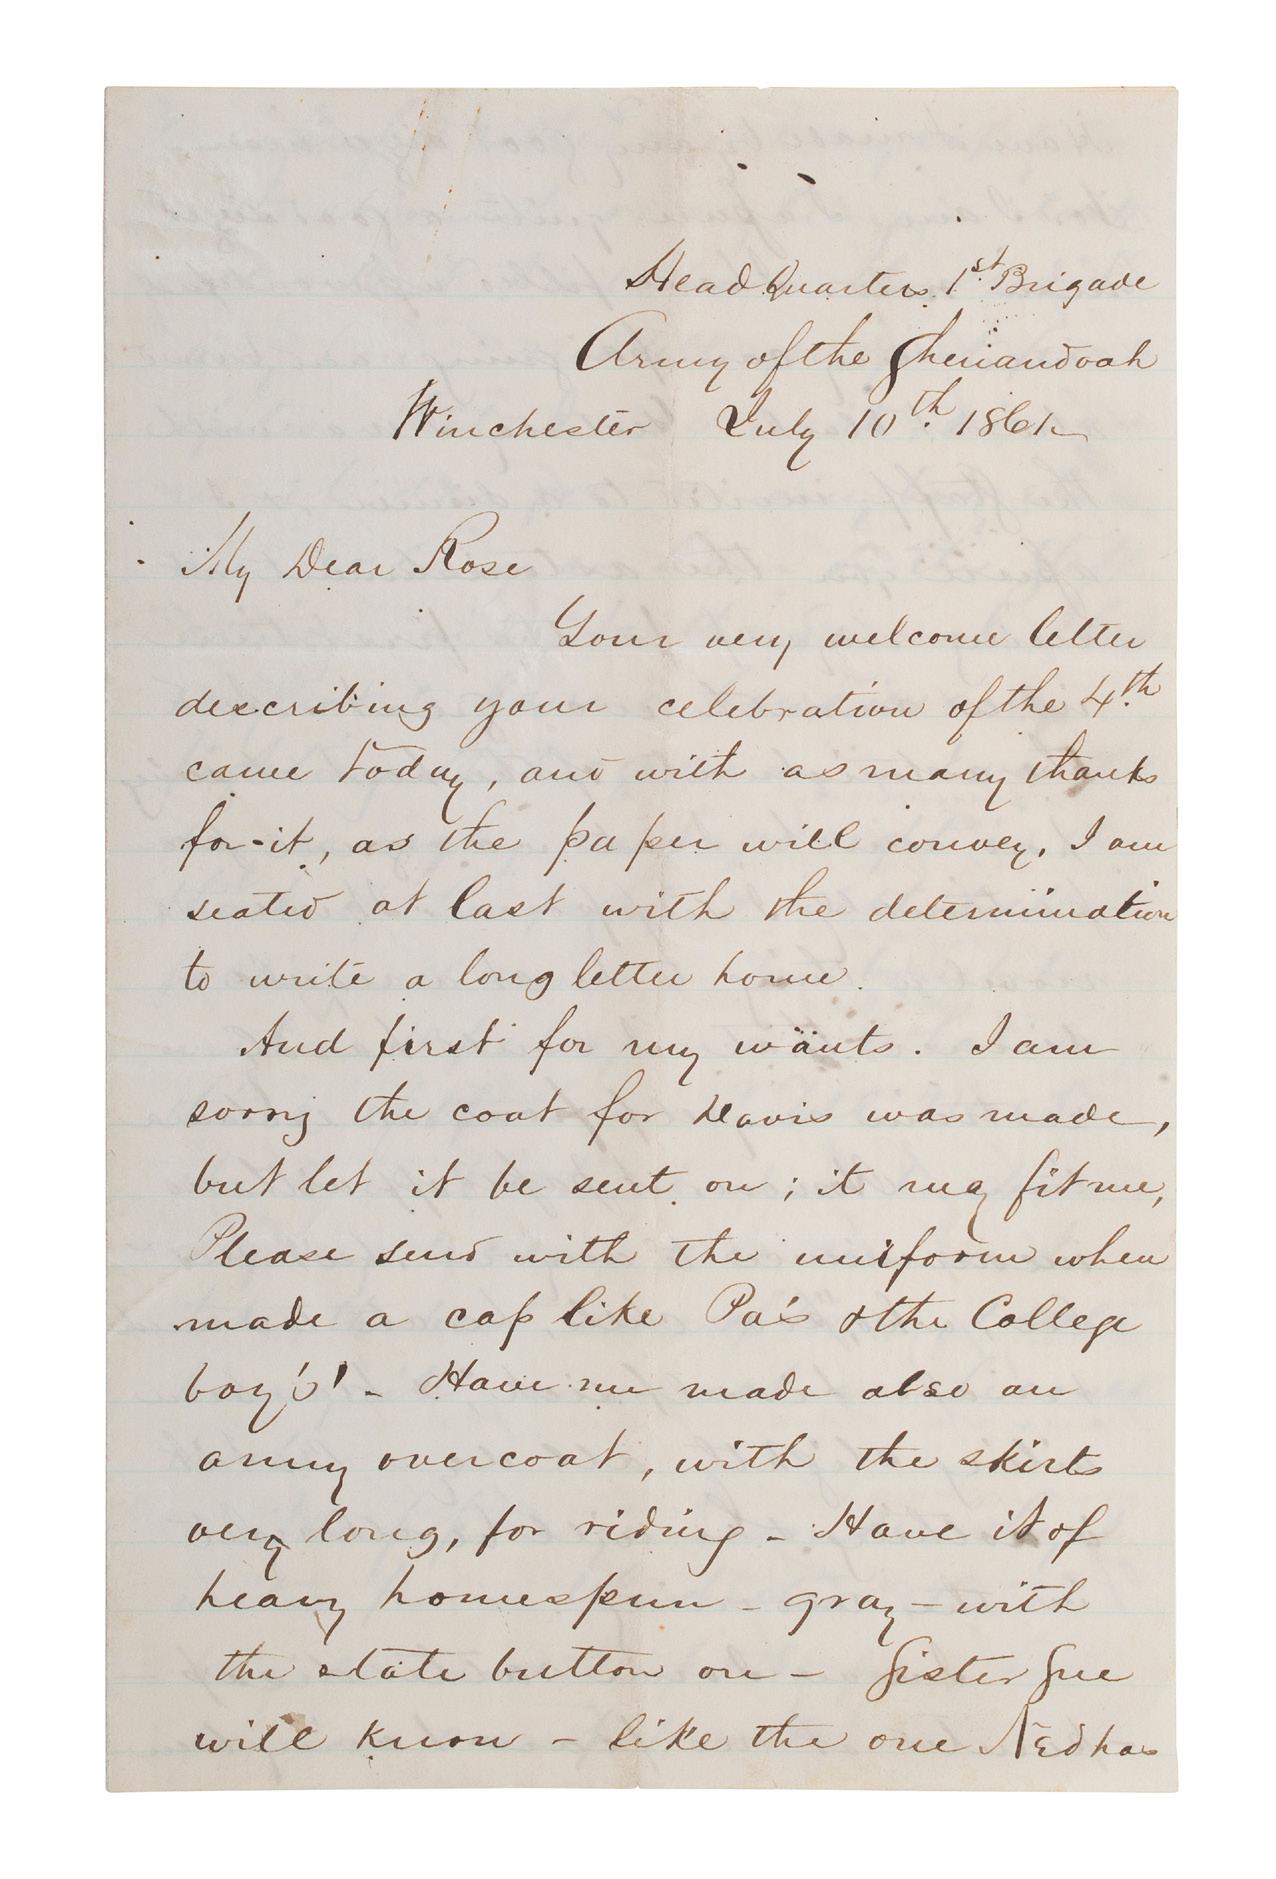 Head Quarters 1st Brigade
Army of the Shenandoah
Winchester July 10th. 1861
My Dear Rose
Your very welcome letter
describing your celebration of the 4th.
came today, and with as many thanks
for it, as the paper will convey, I am
seated at last with the determination
to write a long letter home.
And first for my wants. I am
sorry the coat for Davis was made,
but let it be sent on; it may fit me,
Please send with the uniform when
made a cap like Pa's & the College
boy's' - Have me made also an
army overcoat, with the skirts
very long, for riding - Have it of
heavy homespun - gray - with
the state button on - Sister Sue
will know - like the one Ned has